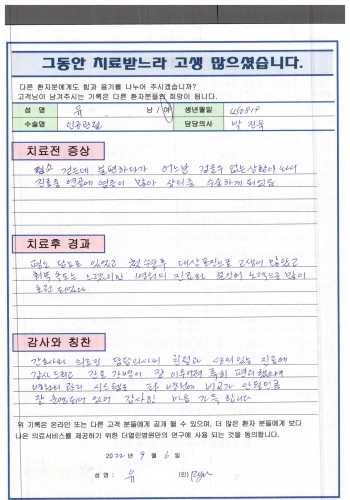 그동안 치료받느라 고생 많으셨습니다.
다른 환자분에게도 힘과 용기를 나누어 주시겠습니까?
고객님이 남겨주시는 기록은 다른 환자분들의 희망이 됩니다.
성 명 유 남 / 여 생년월일
수술명 인공관절 담당의사 박 진욱
치료전 증상
평소 걷는데 불편하다가 어느날 걸을수 없는 상황이 되서
진료중 연골에 염증이 많아 상의중 수술하게 되었음
치료후 경과
평소 당뇨로 있었고 첫 수술후 대상포진으로 고생이 많았고
회복 속도는 느렸지만 병원의 진료와 본인의 노력으로 많이
호전 되었다
감사와 칭찬
간호사와 의료진 담당의사의 친절과 성의있는 진료에
감사드리고 간호 간병이 잘 이루어져 특히 편리했으며
병원의 관리 시스템도 타 병원에 비교가 안될만큼
잘 운영되고 있어 감사한 마음 가득 합니다
위 기록은 온라인 또는 다른 고객 분들에게 공개 될 수 있으며, 더 많은 환자 분들에게 보다
나은 의료서비스를 제공하기 위한 더열린병원만의 연구에 사용 되는 것을 동의합니다.
2022 년 9 월 6 일
성 명 : 유 (인)